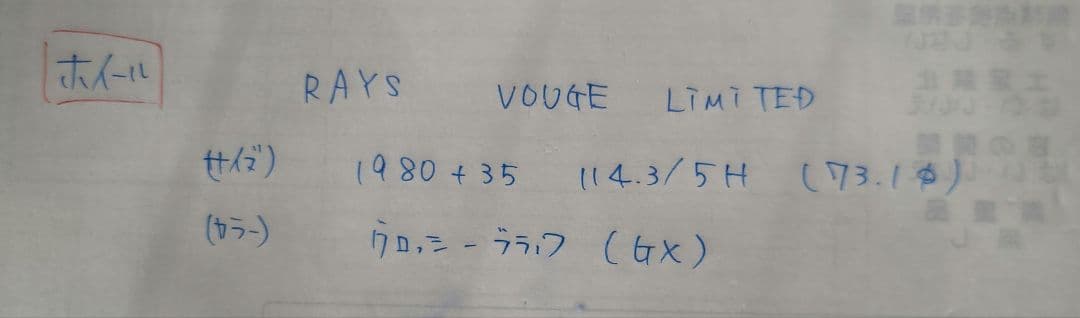 ホイール RAYS VOUGE LIMITED
サイズ) 1980+35 114.3/5H (73.1φ)
(カラー) グロッミーブラック (GX)